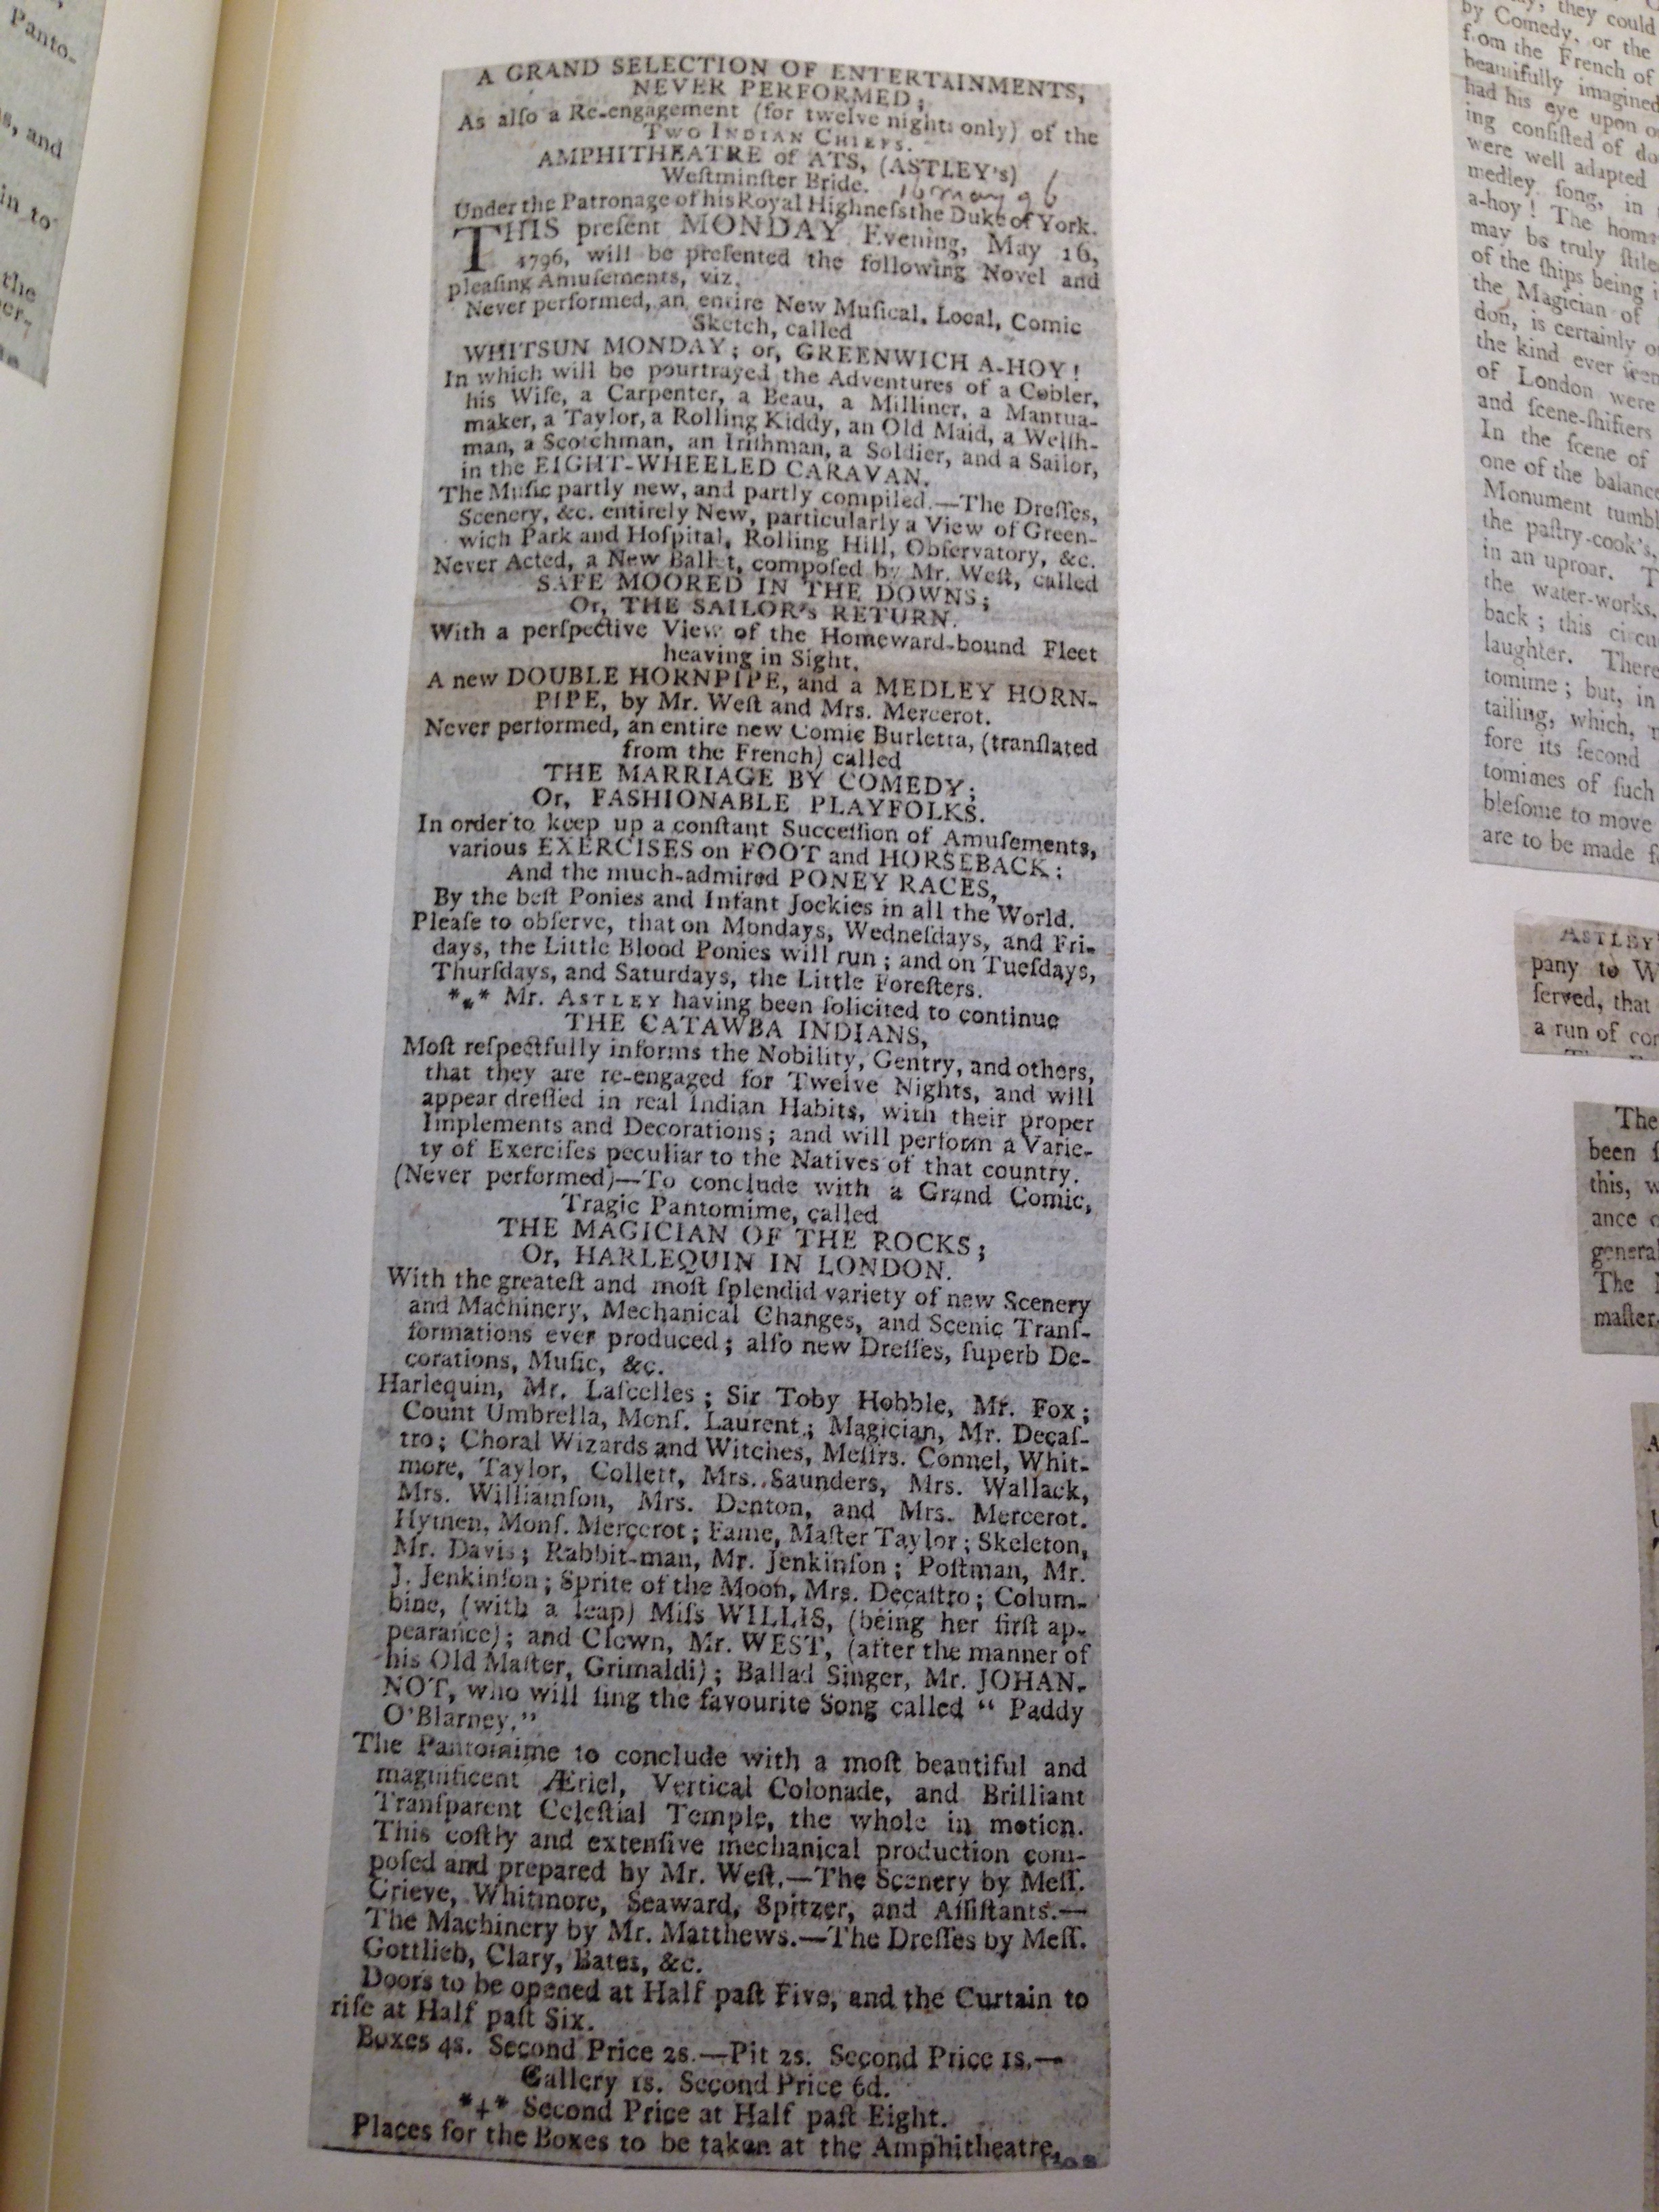 Panto-
s, and
in to
the
er-
A GRAND SELECTION OF ENTERTAINMENTS,
NEVER PERFORMED;
As alſo a Re-engagement (for twelve nights only) of the
TWO INDIAN CHIEFS.
AMPHITHEATRE of ATS, (ASTLEY's)
Weſtminſter Bride.
16 may 96
Under the Patronage of his Royal Highneſs the Duke of York.
THIS preſent MONDAY Evening, May 16,
1796, will be preſented the following Novel and
pleaſing Amuſements, viz.
Never performed, an entire New Muſical, Local, Comic
Sketch, called
WHITSUN MONDAY; or, GREENWICH A-HOY!
In which will be pourtrayed the Adventures of a Cobler,
his Wife, a Carpenter, a Beau, a Milliner, a Mantua-
maker, a Taylor, a Rolling Kiddy, an Old Maid, a Welſh-
man, a Scotchman, an Iriſhman, a Soldier, and a Sailor,
in the EIGHT-WHEELED CARAVAN.
The Muſic partly new, and partly compiled.—The Dreſſes,
Scenery, &c. entirely New, particularly a View of Green-
wich Park and Hoſpital, Rolling Hill, Obſervatory, &c.
Never Acted, a New Ballet, compoſed by Mr. Weſt, called
SAFE MOORED IN THE DOWNS;
Or, THE SAILOR's RETURN.
With a perſpective View of the Homeward-bound Fleet
heaving in Sight.
A new DOUBLE HORNPIPE, and a MEDLEY HORN-
PIPE, by Mr. Weſt and Mrs. Mercerot.
Never performed, an entire new Comic Burletta, (tranſlated
from the French) called
THE MARRIAGE BY COMEDY;
Or, FASHIONABLE PLAYFOLKS.
In order to keep up a conſtant Succeſſion of Amuſements,
various EXERCISES on FOOT and HORSEBACK;
And the much-admired PONEY RACES,
By the beſt Ponies and Infant Jockies in all the World.
Pleaſe to obſerve, that on Mondays, Wedneſdays, and Fri-
days, the Little Blood Ponies will run; and on Tueſdays,
Thurſdays, and Saturdays, the Little Foreſters.
*⁎* Mr. ASTLEY having been ſolicited to continue
THE CATAWBA INDIANS,
Moſt reſpectfully informs the Nobility, Gentry, and others,
that they are re-engaged for Twelve Nights, and will
appear dreſſed in real Indian Habits, with their proper
Implements and Decorations; and will perform a Varie-
ty of Exerciſes peculiar to the Natives of that country.
(Never performed)—To conclude with a Grand Comic,
Tragic Pantomime, called
THE MAGICIAN OF THE ROCKS;
Or, HARLEQUIN IN LONDON.
With the greateſt and moſt ſplendid variety of new Scenery
and Machinery, Mechanical Changes, and Scenic Tranſ-
formations ever produced; alſo new Dreſſes, ſuperb De-
corations, Muſic, &c.
Harlequin, Mr. Laſcelles; Sir Toby Hobble, Mr. Fox;
Count Umbrella, Monſ. Laurent; Magician, Mr. Decaſ-
tro; Choral Wizards and Witches, Meſſrs. Connel, Whit-
more, Taylor, Collett, Mrs. Saunders, Mrs. Wallack,
Mrs. Williamſon, Mrs. Denton, and Mrs. Mercerot.
Hymen, Monſ. Mercerot; Fame, Maſter Taylor; Skeleton,
Mr. Davis; Rabbit-man, Mr. Jenkinſon; Poſtman, Mr.
J. Jenkinſon; Sprite of the Moon, Mrs. Decaſtro; Colum-
bine, (with a leap) Miſs WILLIS, (being her firſt ap-
pearance); and Clown, Mr. WEST, (after the manner of
his Old Maſter, Grimaldi); Ballad Singer, Mr. JOHAN-
NOT, who will ſing the favourite Song called "Paddy
O'Blarney."
The Pantomime to conclude with a moſt beautiful and
magnificent Æriel, Vertical Colonade, and Brilliant
Tranſparent Celeſtial Temple, the whole in motion.
This coſtly and extenſive mechanical production com-
poſed and prepared by Mr. Weſt.—The Scenery by Meſſ.
Grieve, Whitmore, Seaward, Spitzer, and Aſſiſtants.—
The Machinery by Mr. Matthews.—The Dreſſes by Meſſ.
Gottlieb, Clary, Bates, &c.
Doors to be opened at Half paſt Five, and the Curtain to
riſe at Half paſt Six.
Boxes 4s. Second Price 2s.—Pit 2s. Second Price 1s.—
Gallery 1s. Second Price 6d.
*+* Second Price at Half paſt Eight.
Places for the Boxes to be taken at the Amphitheatre.
they could
by Comedy, or the
from the French of
beautifully imagined
had his eye upon
ing conſiſted of
were well adapted
medley ſong, in
a-hoy! The
may be truly
of the ſhips being
the Magician of
don, is certainly
the kind ever
of London were
and ſcene-ſhifters
In the ſcene of
one of the balance
Monument
the paſtry-cook's,
in an uproar.
the water-works,
back; this
laughter. There
tomime; but, in
tailing, which,
fore its ſecond
tomimes of ſuch
bleſome to move
are to be made
ASTLEY'
pany to W
ſerved, that
a run of
The
been
this,
ance
general
The
maſter